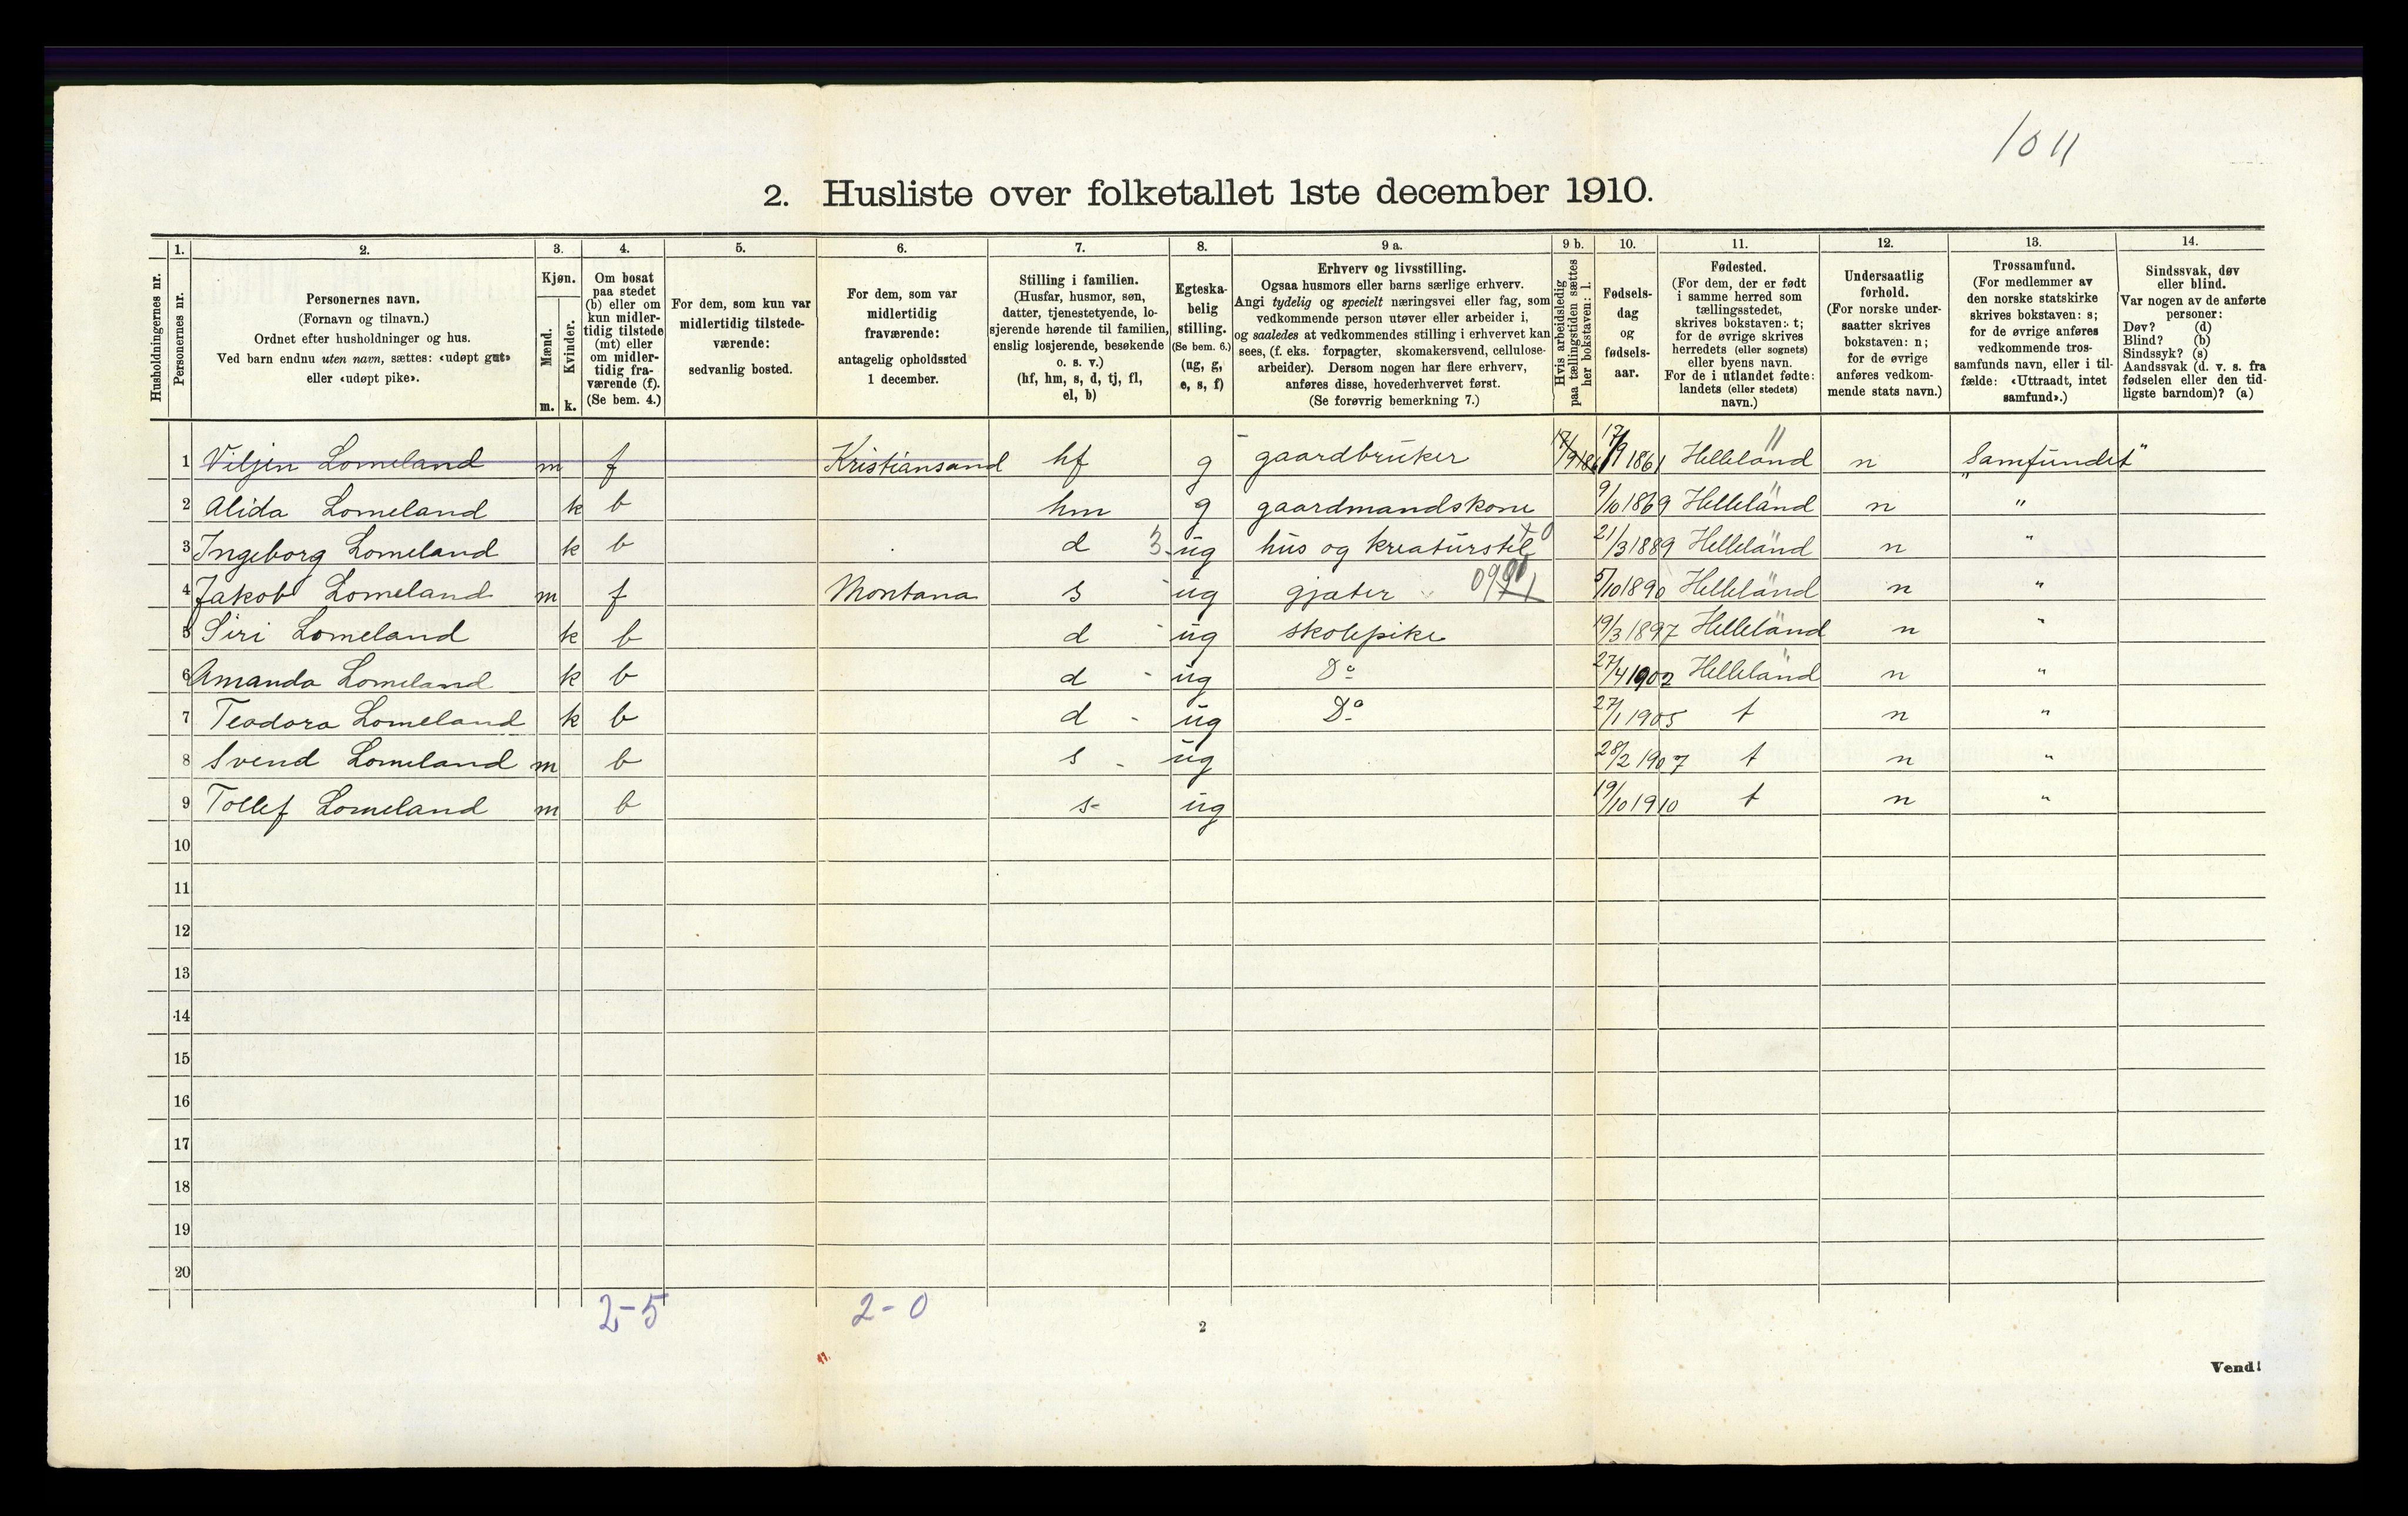 1011
2. Husliste over folketallet 1ste december 1910.
Husholdningernes nr.
1. Personernes nr.
2. Personernes navn.
(Fornavn og tilnavn.)
Ordnet efter husholdninger og hus.
Ved barn endnu uten navn, sættes: «udøpt gut»
eller «udøpt pike».
3. Kjøn.
Mænd. m.
Kvinder. k.
4. Om bosat
paa stedet
(b) eller om
kun midler-
tidig tilstede
(mt) eller
om midler-
tidig fra-
værende (f).
(Se bem. 4.)
5. For dem, som kun var
midlertidig tilstede-
værende:
sedvanlig bosted.
6. For dem, som var
midlertidig
fraværende:
antagelig opholdssted
1 december.
7. Stilling i familien.
(Husfar, husmor, søn,
datter, tjenestetyende, lo-
sjerende hørende til familien,
enslig losjerende, besøkende
o. s. v.)
(hf, hm, s, d, tj, fl,
el, b)
8. Egteska-
belig
stilling.
(Se bem. 6.)
(ug, g,
e, s, f)
9 a. Erhverv og livsstilling.
Ogsaa husmors eller barns særlige erhverv.
Angi tydelig og specielt næringsvei eller fag, som
vedkommende person utøver eller arbeider i,
og saaledes at vedkommendes stilling i erhvervet kan
sees, (f. eks. forpagter, skomakersvend, cellulose-
arbeider). Dersom nogen har flere erhverv,
anføres disse, hovederhvervet først.
(Se forøvrig bemerkning 7.)
9 b. Hvis arbeidsledig
paa tællingstiden sættes
her bokstaven: l.
10. Fødsels-
dag
og
fødsels-
aar.
11. Fødested.
(For dem, der er født
i samme herred som
tællingsstedet,
skrives bokstaven: t;
for de øvrige skrives
herredets (eller sognets)
eller byens navn.
For de i utlandet fødte:
landets (eller stedets)
navn.)
12. Undersaatlig
forhold.
(For norske under-
saatter skrives
bokstaven: n;
for de øvrige
anføres vedkom-
mende stats navn.)
13. Trossamfund.
(For medlemmer av
den norske statskirke
skrives bokstaven: s;
for de øvrige anføres
vedkommende tros-
samfunds navn, eller i til-
fælde: «Uttraadt, intet
samfund».)
14. Sindssvak, døv
eller blind.
Var nogen av de anførte
personer:
Døv? (d)
Blind? (b)
Sindssyk? (s)
Aandssvak (d. v. s. fra
fødselen eller den tid-
ligste barndom)? (a)
1 Viljen Lomeland m f Kristiansand hf g gaardbruker 17/9 1861 Helleland n "Samfundet"
2 Alida Lomeland k b hm g gaardmandskone 9/10 1869 Helleland n "
3 Ingeborg Lomeland k b d 3 ug hus og kreaturstel 21/3 1889 Helleland n "
4 Jakob Lomeland m f Montana s ug gjæter 5/10 1890 Helleland n "
5 Siri Lomeland k b d ug skolepike 19/3 1897 Helleland n "
6 Amanda Lomeland k b d ug Do 27/4 1902 Helleland n "
7 Teodora Lomeland k b d ug Do 27/1 1905 t n "
8 Svend Lomeland m b s ug 28/2 1907 t n "
9 Tollef Lomeland m b s ug 19/10 1910 t n "
10
11
12
13
14
15
16
17
18
19
20
2-5 2-0
2
Vend!